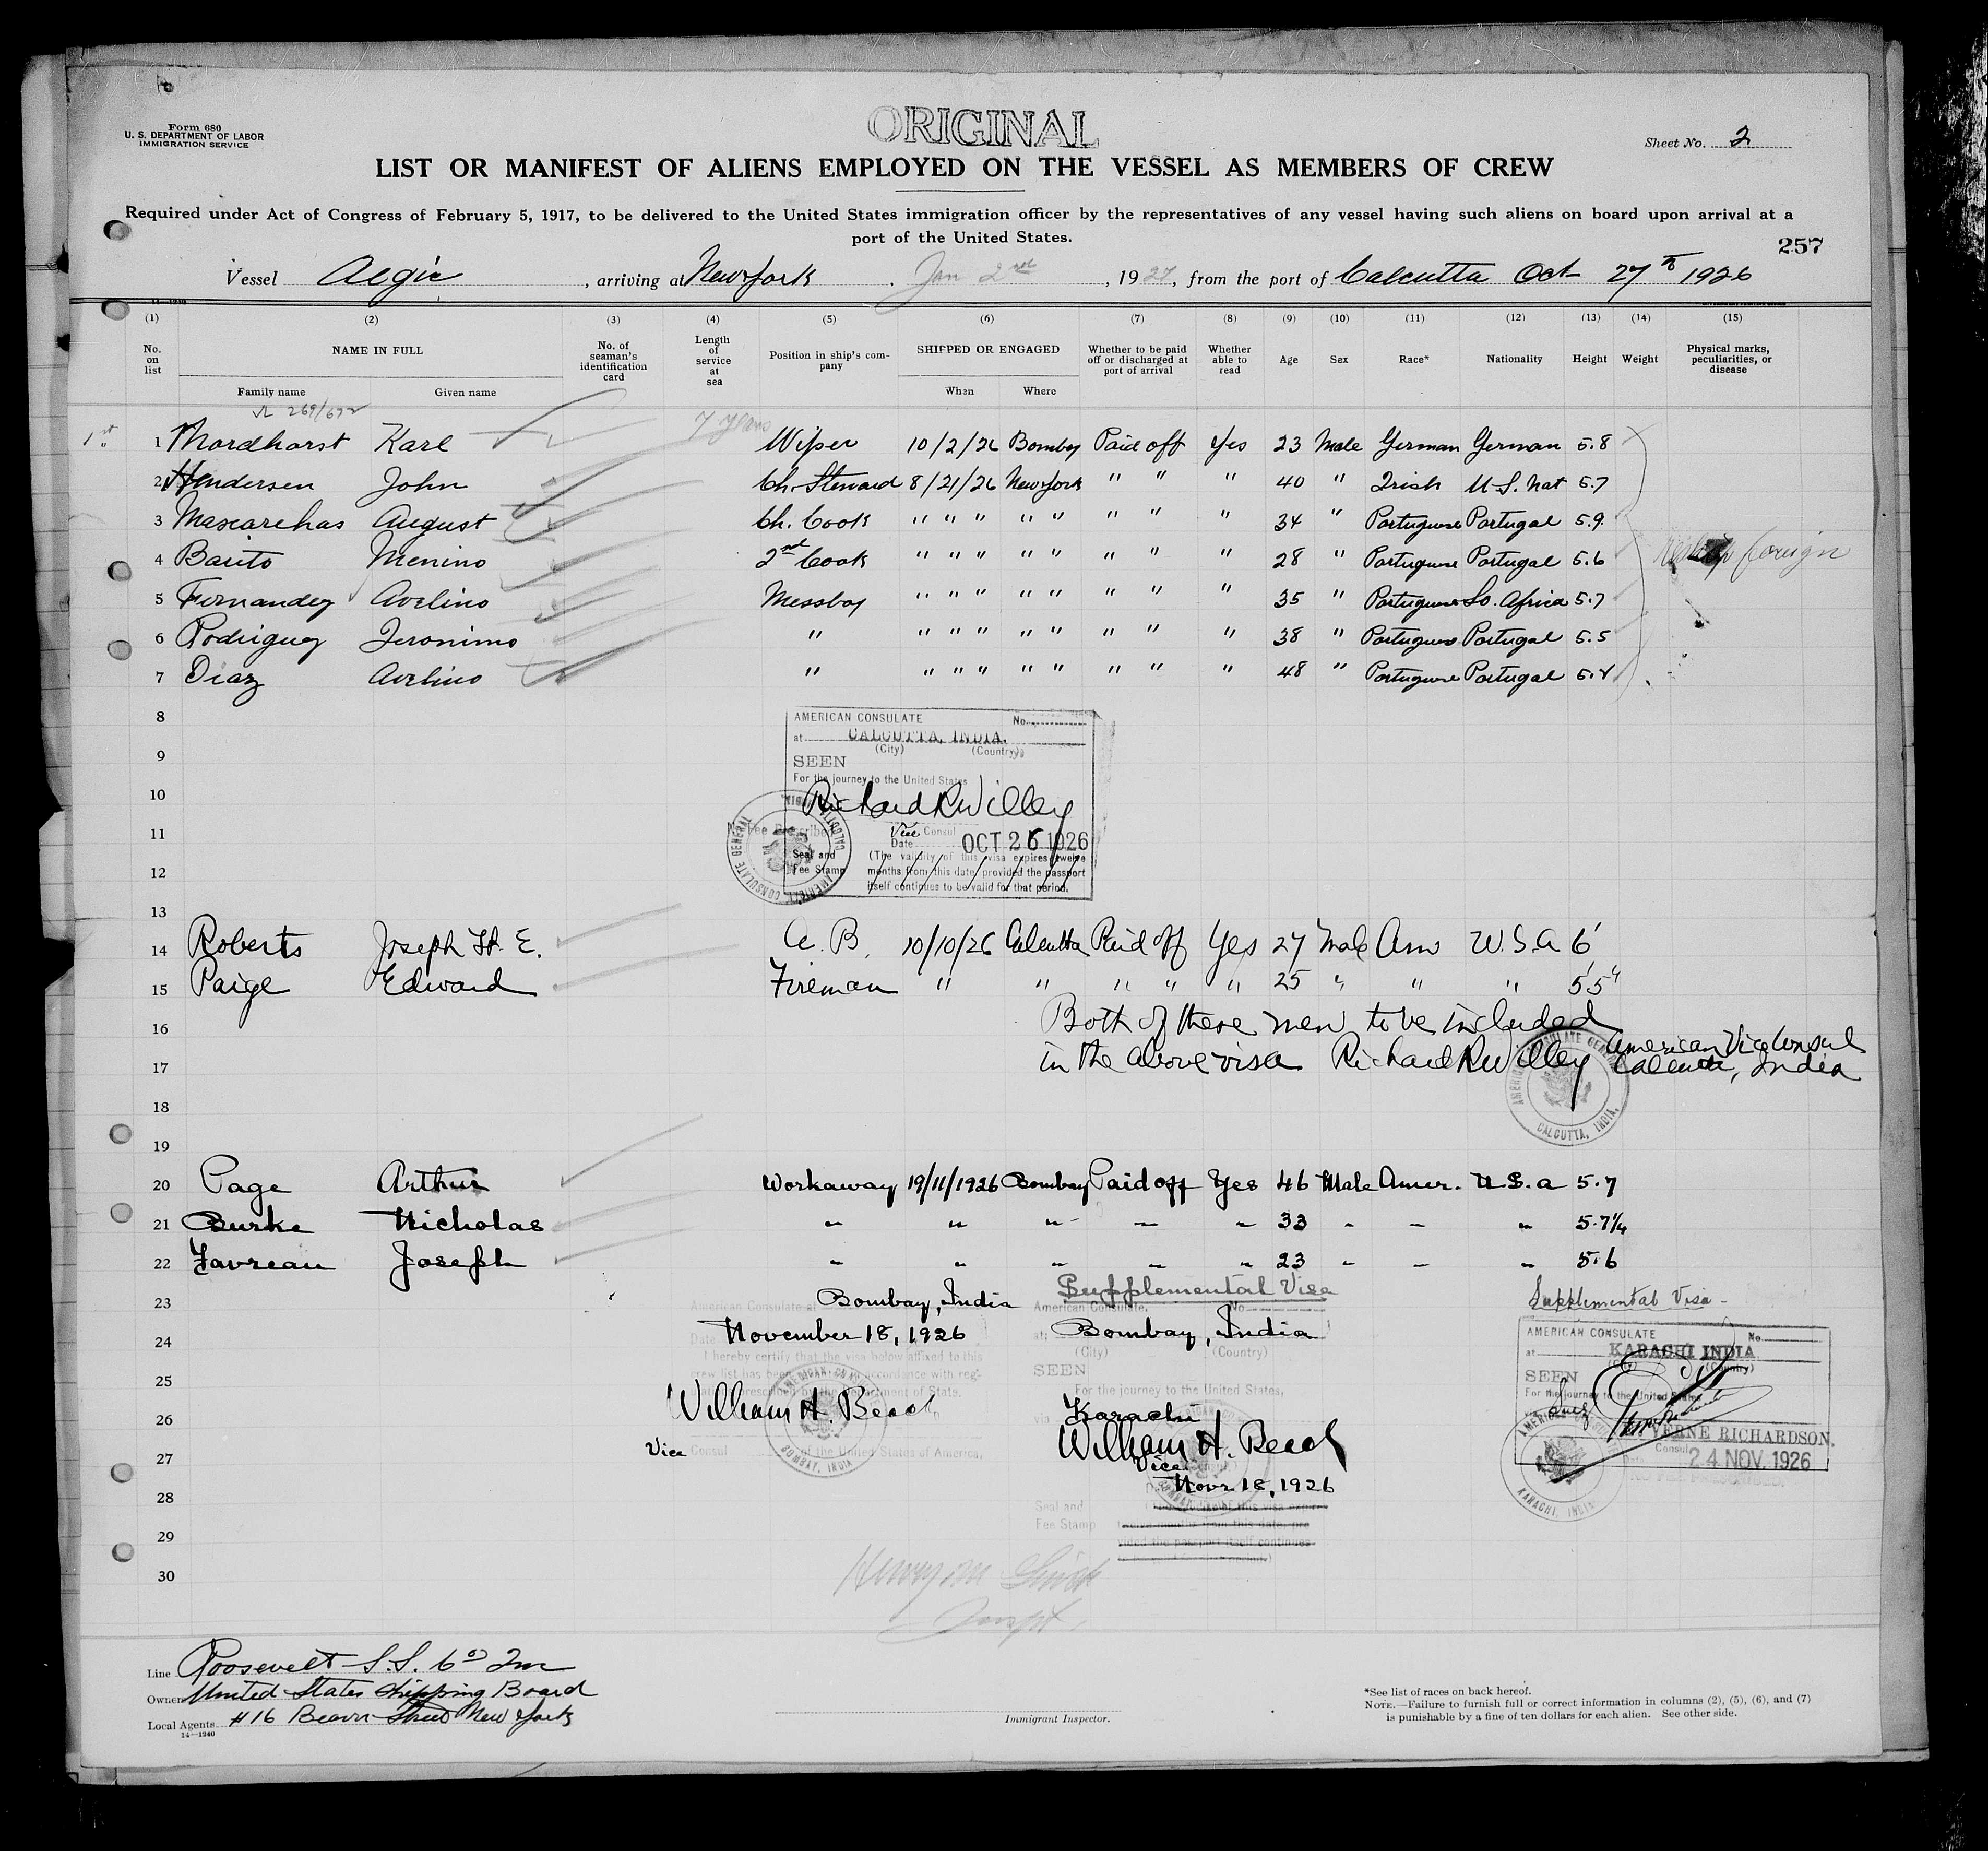 Form 680
U. S. DEPARTMENT OF LABOR
IMMIGRATION SERVICE
ORIGINAL
Sheet No. 2
LIST OR MANIFEST OF ALIENS EMPLOYED ON THE VESSEL AS MEMBERS OF CREW
Required under Act of Congress of February 5, 1917, to be delivered to the United States immigration officer by the representatives of any vessel having such aliens on board upon arrival at a
port of the United States.
257
Vessel Aegic, arriving at New York Jan 2nd, 1927, from the port of Calcutta Oct 27th 1926
(1) (2) (3) (4) (5) (6) (7) (8) (9) (10) (11) (12) (13) (14) (15)
No. on list NAME IN FULL No. of seaman's identification card Length of service at sea Position in ship's company SHIPPED OR ENGAGED Whether to be paid off or discharged at port of arrival Whether able to read Age Sex Race* Nationality Height Weight Physical marks, peculiarities, or disease
Family name Given name When Where
1st 1 Mordhorst Karl 7 years Wiper 10/2/26 Bombay Paid off Yes 23 Male German German 5.8
2 Hendersen John Ch. Steward 8/21/26 New York " " " 40 " Irish U.S. Nat 5.7
3 Mascarehas August Ch. Cook " " " " " " " " 34 " Portuguese Portugal 5.9
4 Barito Menino 2nd Cook " " " " " " " " 28 " Portuguese Portugal 5.6
foreign
5 Fernandez Avelino Messboy " " " " " " " " 35 " Portuguese So. Africa 5.7
6 Rodriguez Jeronimo " " " " " " " " " 38 " Portuguese Portugal 5.5
7 Diaz Avelino " " " " " " " " " 48 " Portuguese Portugal 5.4
8
AMERICAN CONSULATE No.
at CALCUTTA, INDIA.
(City) (Country)
9
SEEN
For the journey to the United States
10
Richard R Willey
11
Vice Consul
Date OCT 26 1926
Seal and Fee Stamp
(The validity of this visa expires twelve
12
months from this date, provided the passport
itself continues to be valid for that period.
AMERICAN CONSULATE GENERAL CALCUTTA, INDIA.
13
14 Roberts Joseph H. E. A. B. 10/10/26 Calcutta Paid off Yes 27 Male Am U.S.A 6'
15 Paige Edward Fireman " " " " " 25 " " " 5'5"
16 Both of these men to be included
17 in the above visa Richard R Willey American Vice Consul
Calcutta, India
AMERICAN CONSULATE GENERAL CALCUTTA, INDIA.
18
19
20 Page Arthur Workaway 19/11/1926 Bombay Paid off Yes 46 Male Amer. U.S.A 5.7
21 Burke Nicholas " " " " " 33 " " " 5.7 1/4
22 Favreau Joseph " " " " " 23 " " " 5.6
23
American Consulate at Bombay, India
24
Date November 18, 1926
I hereby certify that the visa below affixed to this
crew list has been accordance with reg-
25
prescribed by the Department of State.
26
William H. Beach
27
Vice Consul of the United States of America.
AMERICAN CONSULATE BOMBAY, INDIA
Supplemental Visa
American Consulate, No
at Bombay, India
(City) (Country)
SEEN
For the journey to the United States,
via Karachi
William H. Beach
Vice
Nov. 18, 1926
Seal and
Fee Stamp
Supplemental Visa
AMERICAN CONSULATE No.
at KARACHI INDIA
(Country)
SEEN
For the journey to the United States
VERNE RICHARDSON.
Consul
24 NOV. 1926
KARACHI, INDIA
28
29
30
Line Roosevelt S.S. Co Inc
Owner United States Shipping Board
Local Agents #16 Beaver Street New York
14—1240
Immigrant Inspector.
*See list of races on back hereof.
NOTE.—Failure to furnish full or correct information in columns (2), (5), (6), and (7)
is punishable by a fine of ten dollars for each alien. See other side.